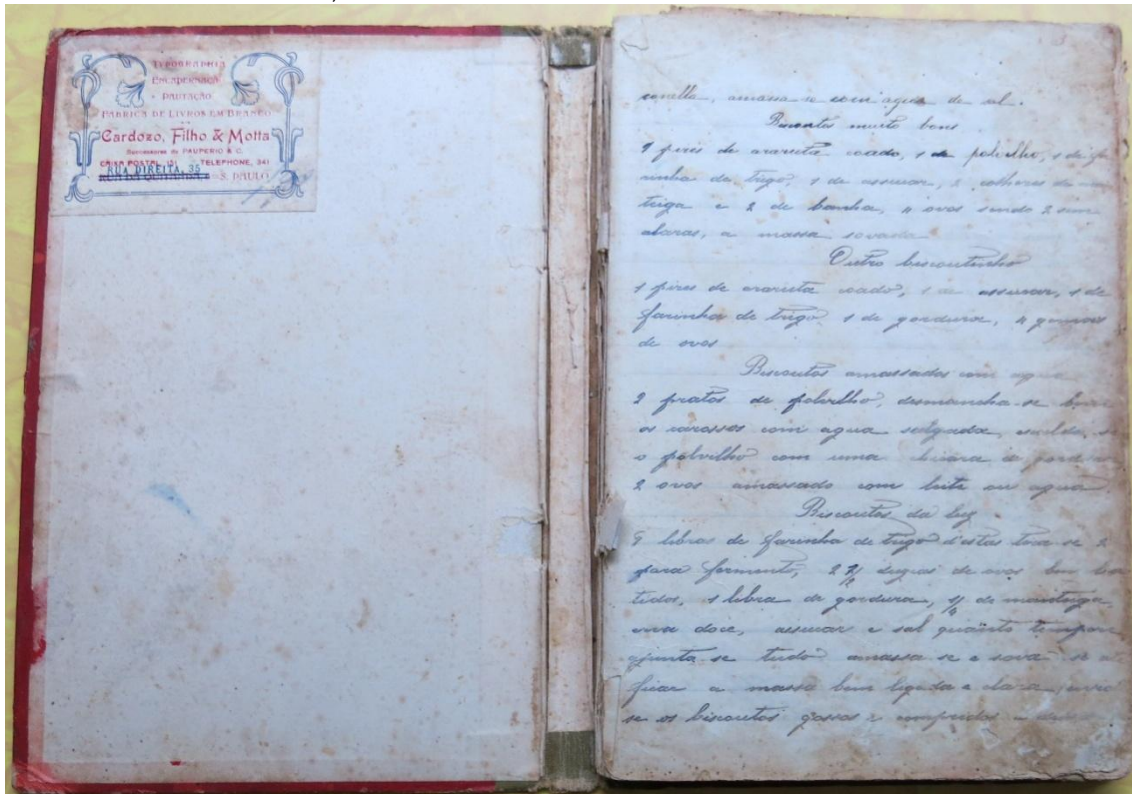 TYPOGRAPHIA
ENCADERNAÇÃO
PAUTAÇÃO
FABRICA DE LIVROS EM BRANCO
Cardozo, Filho & Motta
Successores de PAUPERIO & C.
CAIXA POSTAL, 151 TELEPHONE, 341
RUA DIREITA, 35 S. PAULO
canella, amassa-se com agua de sal.
Biscoutos muito bons
1 pires de araruta coado, 1 de polvilho, 1 de fa
rinha de trigo, 1 de assucar, 2 colheres de man
teiga e 2 de banha, 4 ovos sendo 2 sem
claras, a massa sovada
Outro biscoutinho
1 pires de araruta coado, 1 de assucar, 1 de
farinha de trigo 1 de gordura, 4 gemmas
de ovos
Biscoutos amassados com agua
2 pratos de polvilho, desmancha-se bem
os carossos com agua salgada, escalda-se
o polvilho com uma chicara de gordura
2 ovos amassado com leite ou agua
Biscoutos da luz
libras de farinha de trigo d'estas tira-se 2
para fermento, 2 1/2 duzias de ovos bem ba
tidos, 1 libra de gordura, 1/4 de manteiga,
erva doce, assucar e sal quanto tempere
ajunta-se tudo amassa-se e sova-se at
ficar a massa bem ligada e clara, enro
se os biscoutos grossos e compridos